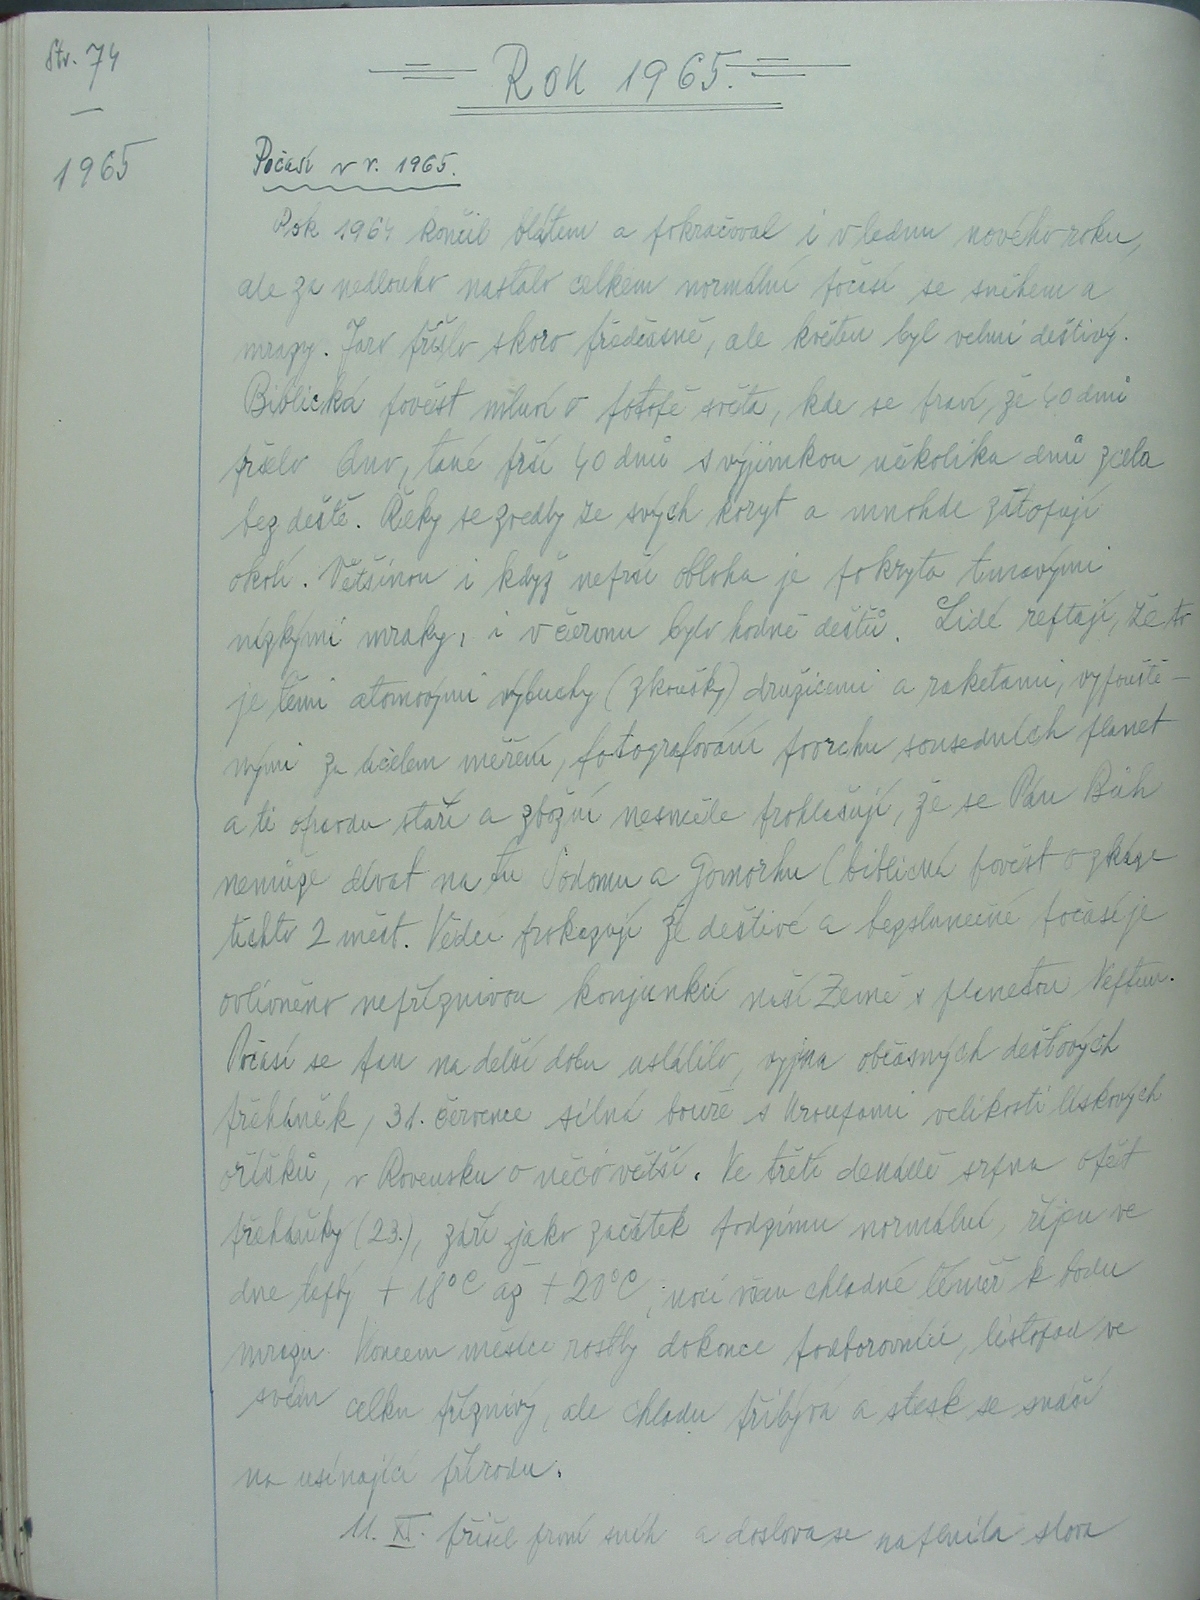 Str. 74
1965
Rok 1965.
Počasí v r. 1965.
Rok 1964 končil blátem a pokračoval i v lednu nového roku,
ale za nedlouho nastalo celkem normální počasí se sněhem a
mrazy. Jaro přišlo skoro předčasně, ale květen byl velmi deštivý.
Biblická pověst mluví o potopě světa, kde se praví, že 40 dnů
pršelo ano, také prší 40 dnů s výjimkou několika dnů zcela
bez deště. Řeky se zvedly ze svých koryt a mnohde zátopují
okolí. Většinou i když neprší obloha je pokryta tmavými
nízkými mraky, i v červnu bylo hodně dešťů. Lidé reptají, že to
je těmi atomovými výbuchy (zkoušky) družicemi a raketami, vypouště-
nými za účelem měření, fotografování povrchu sousedních planet
a ti opravdu staří a zbožní nesměle prohlašují, že se Pán Bůh
nemůže dívat na tu Sodomu a Gomorhu (biblická pověst o zkáze
těchto 2 měst. Vědci prokazují že deštivé a bezslunečné počasí je
ovlivněno nepříznivou konjunkcí naší Země s planetou Neptun.
Počasí se pak na delší dobu ustálilo, vyjma občasných dešťových
přeháněk, 31. července silná bouře s kroupami velikosti lískových
oříšků, v Rovensku o něco větší. Ve třetí dekádě srpna opět
přeháňky (23.), září jako začátek podzimu normální, říjnu ve
dne teploty + 18°C až + 20°C, noci však chladné téměř k bodu
mrazu. Koncem měsíce rostly dokonce podborovníci, listopad ve
svém celku příznivý, ale chladu přibývá a stesk se snáší
na usínající přírodu.
11. XI. přišel první sníh a doslova se naplnila slova